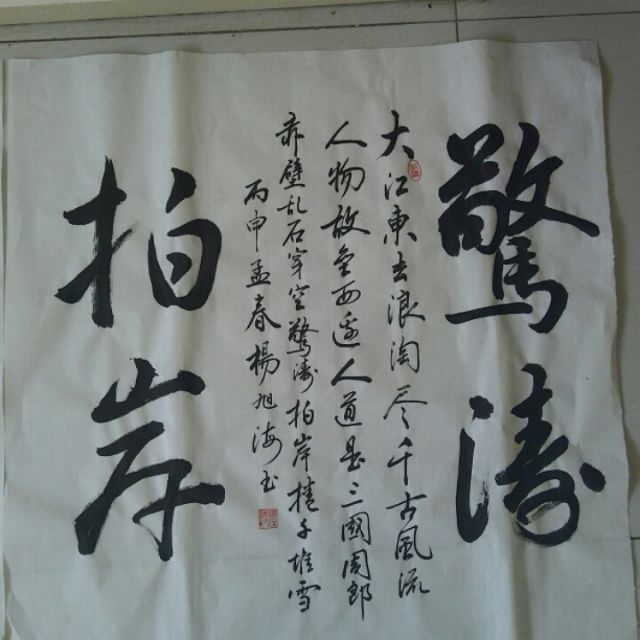 驚涛
大江東去浪淘尽千古風流
人物故垒西边人道是三國周郎
赤壁乱石穿空驚涛拍岸捲千堆雪
丙申孟春楊旭海玉
拍岸